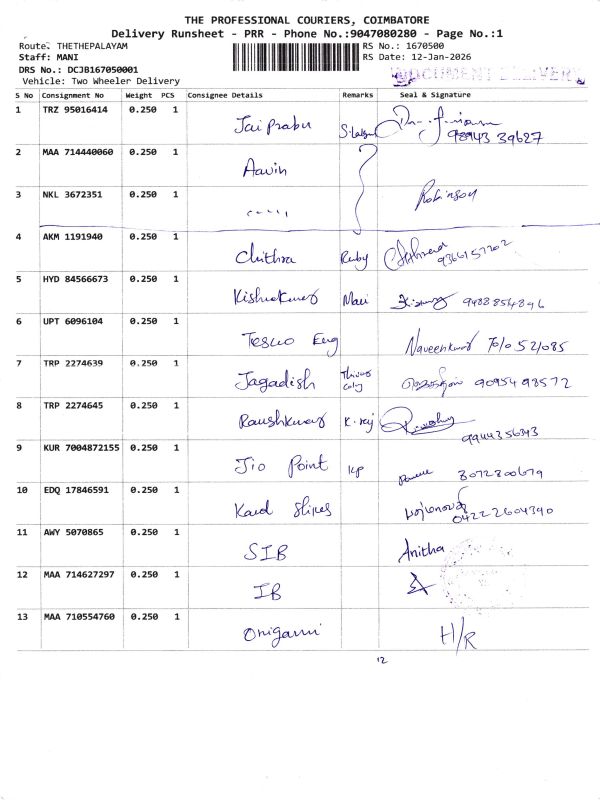 THE PROFESSIONAL COURIERS, COIMBATORE
Delivery Runsheet - PRR - Phone No.:9047080280 - Page No.:1
Route: THETHEPALAYAM RS No.: 1670500
Staff: MANI RS Date: 12-Jan-2026
DRS No.: DCJB167050001
Vehicle: Two Wheeler Delivery DOCUMENT DELIVERY
S No Consignment No Weight PCS Consignee Details Remarks Seal & Signature
1 TRZ 95016414 0.250 1 Jai prabu 98943 39627
2 MAA 714440060 0.250 1 Aavin
3 NKL 3672351 0.250 1 Robinson
4 AKM 1191940 0.250 1 Chithra Ruby 9366157202
5 HYD 84566673 0.250 1 Kishorkumar Mari 9488854896
6 UPT 6096104 0.250 1 Tesco Eng Naveenkumar
7 TRP 2274639 0.250 1 Jagadish 90954 98572
8 TRP 2274645 0.250 1 K.raj 9944356343
9 KUR 7004872155 0.250 1 Jio Point KP 8072800679
10 EDQ 17846591 0.250 1 04222604340
11 AWY 5070865 0.250 1 SIB Anitha
12 MAA 714627297 0.250 1 IB
13 MAA 710554760 0.250 1 Origami H/R
12